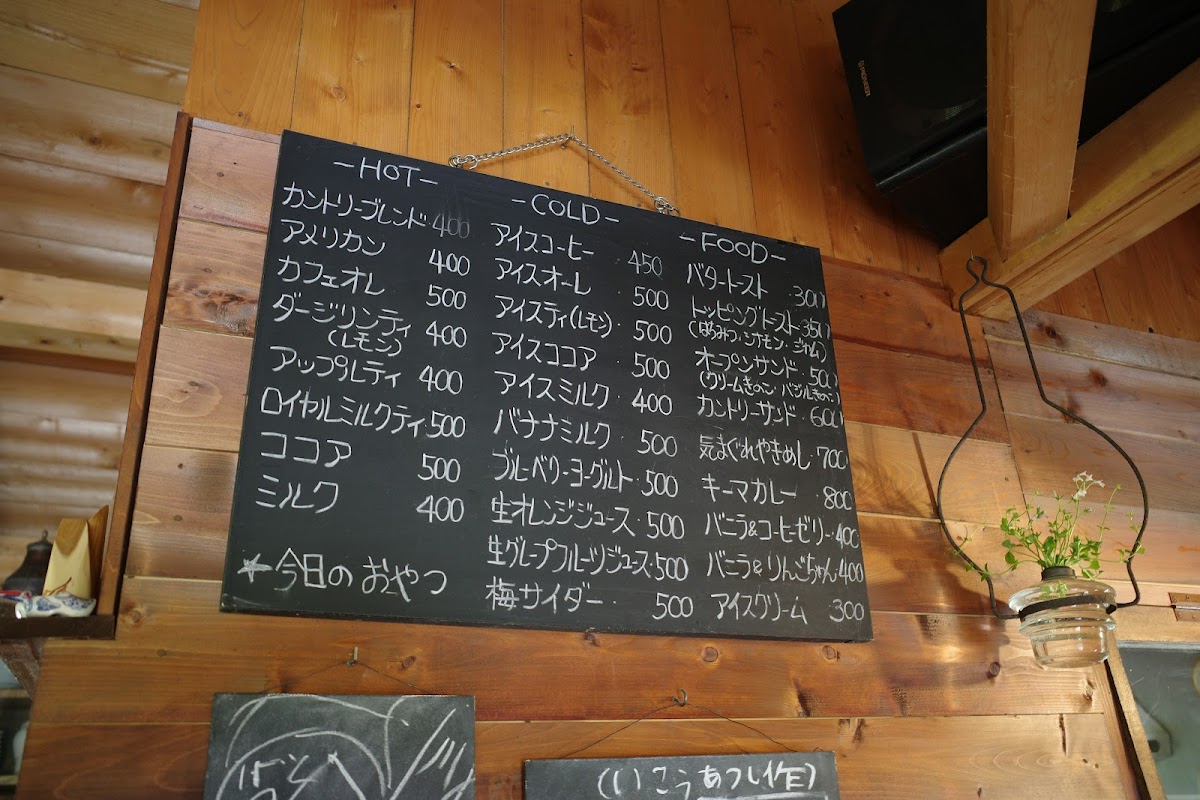 -HOT-
カントリーブレンド 400
アメリカン 400
カフェオレ 500
ダージリンティ 400
(レモン)
アップルティ 400
ロイヤルミルクティ 500
ココア 500
ミルク 400
★今日のおやつ
-COLD-
アイスコーヒー・450
アイスオーレ 500
アイスティ(レモン)・500
アイスココア 500
アイスミルク・400
バナナミルク・500
ブルーベリーヨーグルト・500
生オレンジジュース・500
生グレープフルーツジュース・500
梅サイダー・500
-FOOD-
バタートースト・300
トッピングトースト・350
(はちみつ・シナモン・ジャム)
オープンサンド・500
(クリームきのこ・バジルきのこ)
カントリーサンド・600
気まぐれやきめし・700
キーマカレー・800
バニラ&コーヒーゼリー・400
バニラ&りんごちゃん・400
アイスクリーム 300
PIONEER
(いこうあつし作)